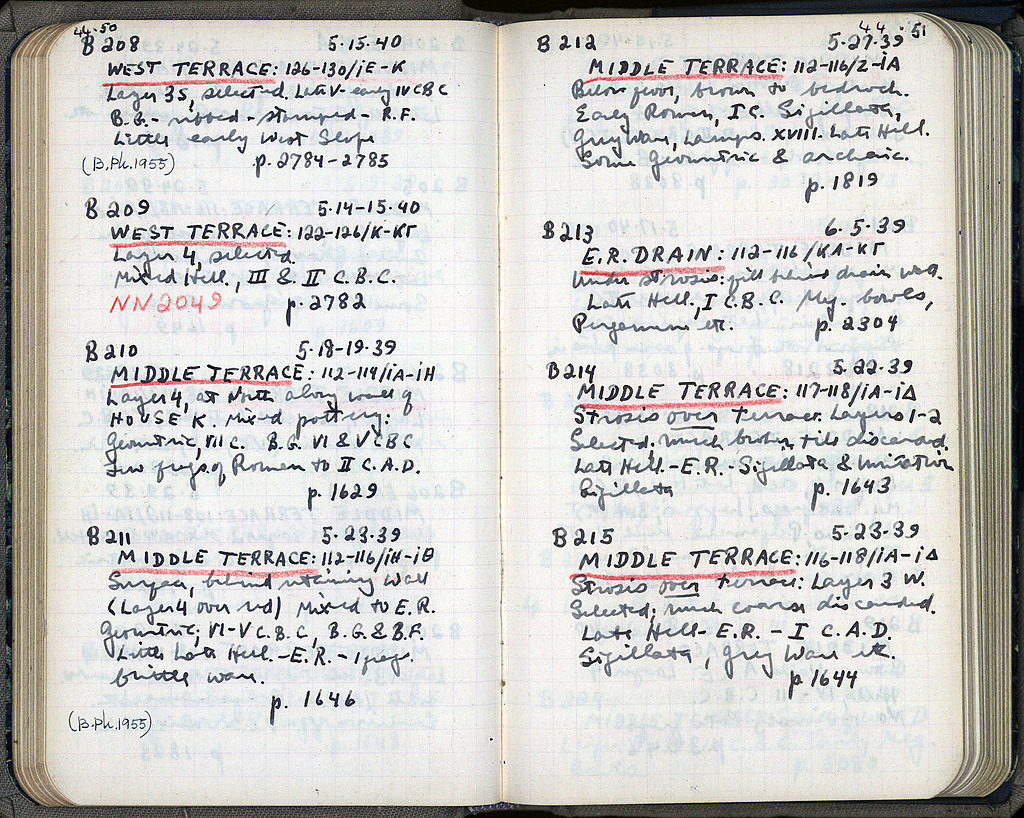 44·50
B 208 5·15·40
WEST TERRACE: 126-130/iE-K
Layer 35, selected. Late V- early IV C B C
B.G.- ribbed - stamped - R.F.
Little early West Slope
(B.Ph.1955) p. 2784-2785
B 209 5·14-15·40
WEST TERRACE: 122-126/K-KΓ
Layer 4, selected.
Mixed Hell., III & II C.B.C.
NN 2049 p. 2782
B 210 5·18-19·39
MIDDLE TERRACE: 112-114/iA-iH
Layer 4, at North along wall of
HOUSE K. Mixed pottery:
Geometric, VII C. B.G. VI & V C B C
Few frags of Roman to II C.A.D.
p. 1629
B 211 5·23·39
MIDDLE TERRACE: 112-116/iH-iΘ
Surface, behind retaining wall
(Layer 4 over red) Mixed to E.R.
Geometric; VI-V C.B.C., B.G. & B.F.
Little Late Hell.-E.R.- 1 frag.
brittle ware.
p. 1646
(B.Ph.1955)
44·51
B 212 5·27·39
MIDDLE TERRACE: 112-116/Z-iA
Below floor, brown to bedrock.
Early Roman, I C. Sigillata,
Grey Ware, Lamps XVIII. Late Hell.
Some Geometric & archaic.
p. 1819
B 213 6·5·39
E.R. DRAIN: 112-116/KA-KΓ
Under strosis: fill behind drain wall.
Late Hell., I C.B.C. Meg. bowls,
Pergamene etc. p. 2304
B 214 5·22·39
MIDDLE TERRACE: 117-118/iA-iΔ
Strosis over terrace. Layers 1-2
Selected; much broken tile discarded.
Late Hell.-E.R.-Sigillata & imitation
Sigillata p. 1643
B 215 5·23·39
MIDDLE TERRACE: 116-118/iA-iΔ
Strosis over terrace: Layer 3 W.
Selected; much coarse discarded.
Late Hell-E.R. - I C.A.D.
Sigillata, Grey Ware etc.
p. 1644